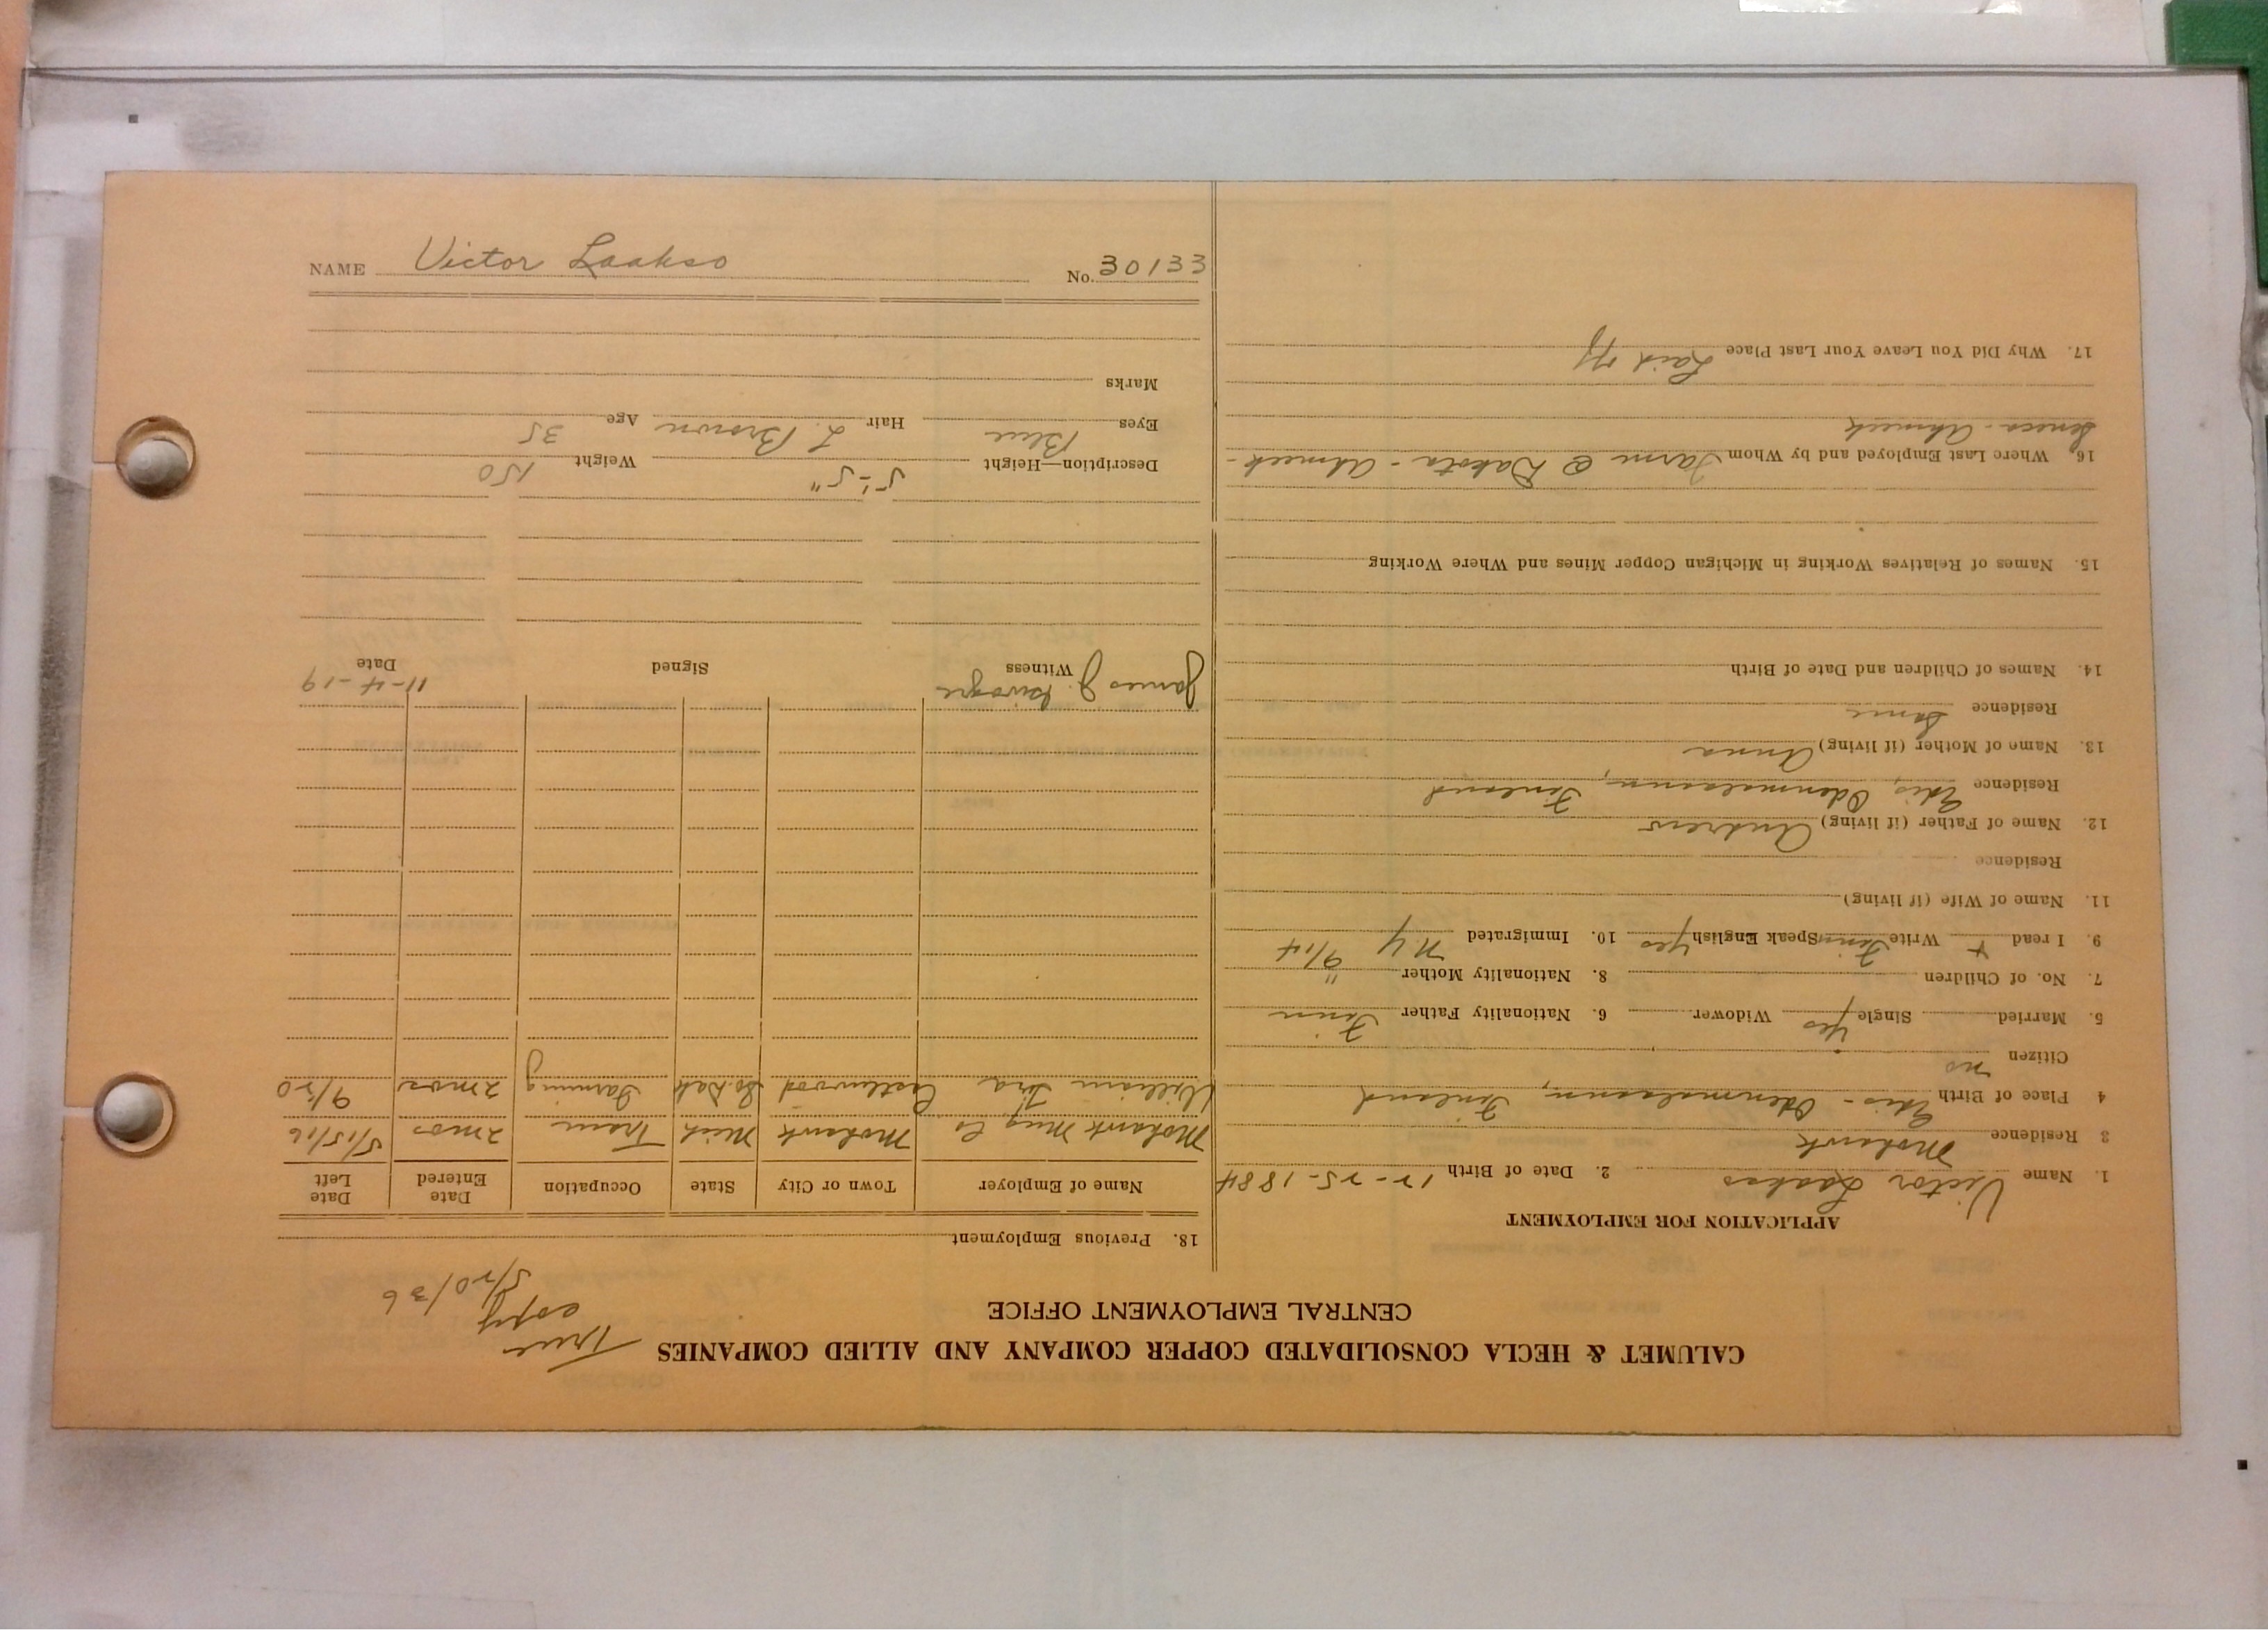 CALUMET & HECLA CONSOLIDATED COPPER COMPANY AND ALLIED COMPANIES
CENTRAL EMPLOYMENT OFFICE
True
copy
5/20/36
APPLICATION FOR EMPLOYMENT
1. Name Victor Laakso 2. Date of Birth 12-25-1884
3 Residence Mohawk
4 Place of Birth Finland
Citizen no
5. Married Single yes Widower 6. Nationality Father Finn
7. No. of Children 8. Nationality Mother "
9. I read + Write Finn Speak English yes 10. Immigrated N Y 9/14
11. Name of Wife (if living)
Residence
12. Name of Father (if living) Andrew
Residence Finland
13. Name of Mother (if living) Anna
Residence Same
14. Names of Children and Date of Birth
15. Names of Relatives Working in Michigan Copper Mines and Where Working
16 Where Last Employed and by Whom Farm @ Dakota - Ahmeek -
Seneca - Ahmeek
17. Why Did You Leave Your Last Place Laid off
18. Previous Employment
Name of Employer Town or City State Occupation Date Entered Date Left
Mohawk Mng Co Mohawk Mich Tram 2 mos 5/15/16
William Castlewood So. Dak Farming 2 mos 9/20
James J. 11-4-19
Witness Signed Date
Description—Height 5'-5" Weight 150
Eyes Blue Hair L. Brown Age 35
Marks
NAME Victor Laakso No. 30133